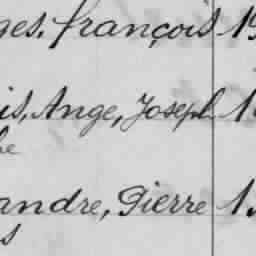 ges, françois 19
is, Ange, Joseph 1
he
andre, Pierre 1.
s